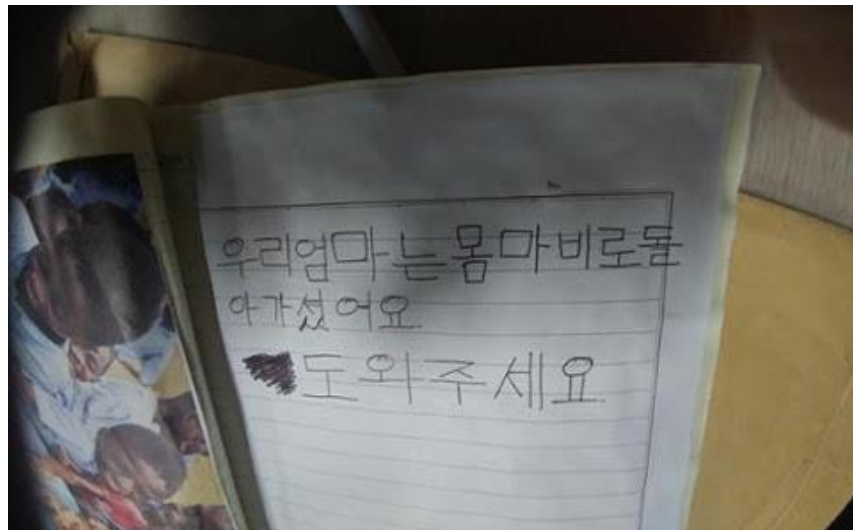 우리엄마는몸마비로돌
아가셨어요.
도와주세요.